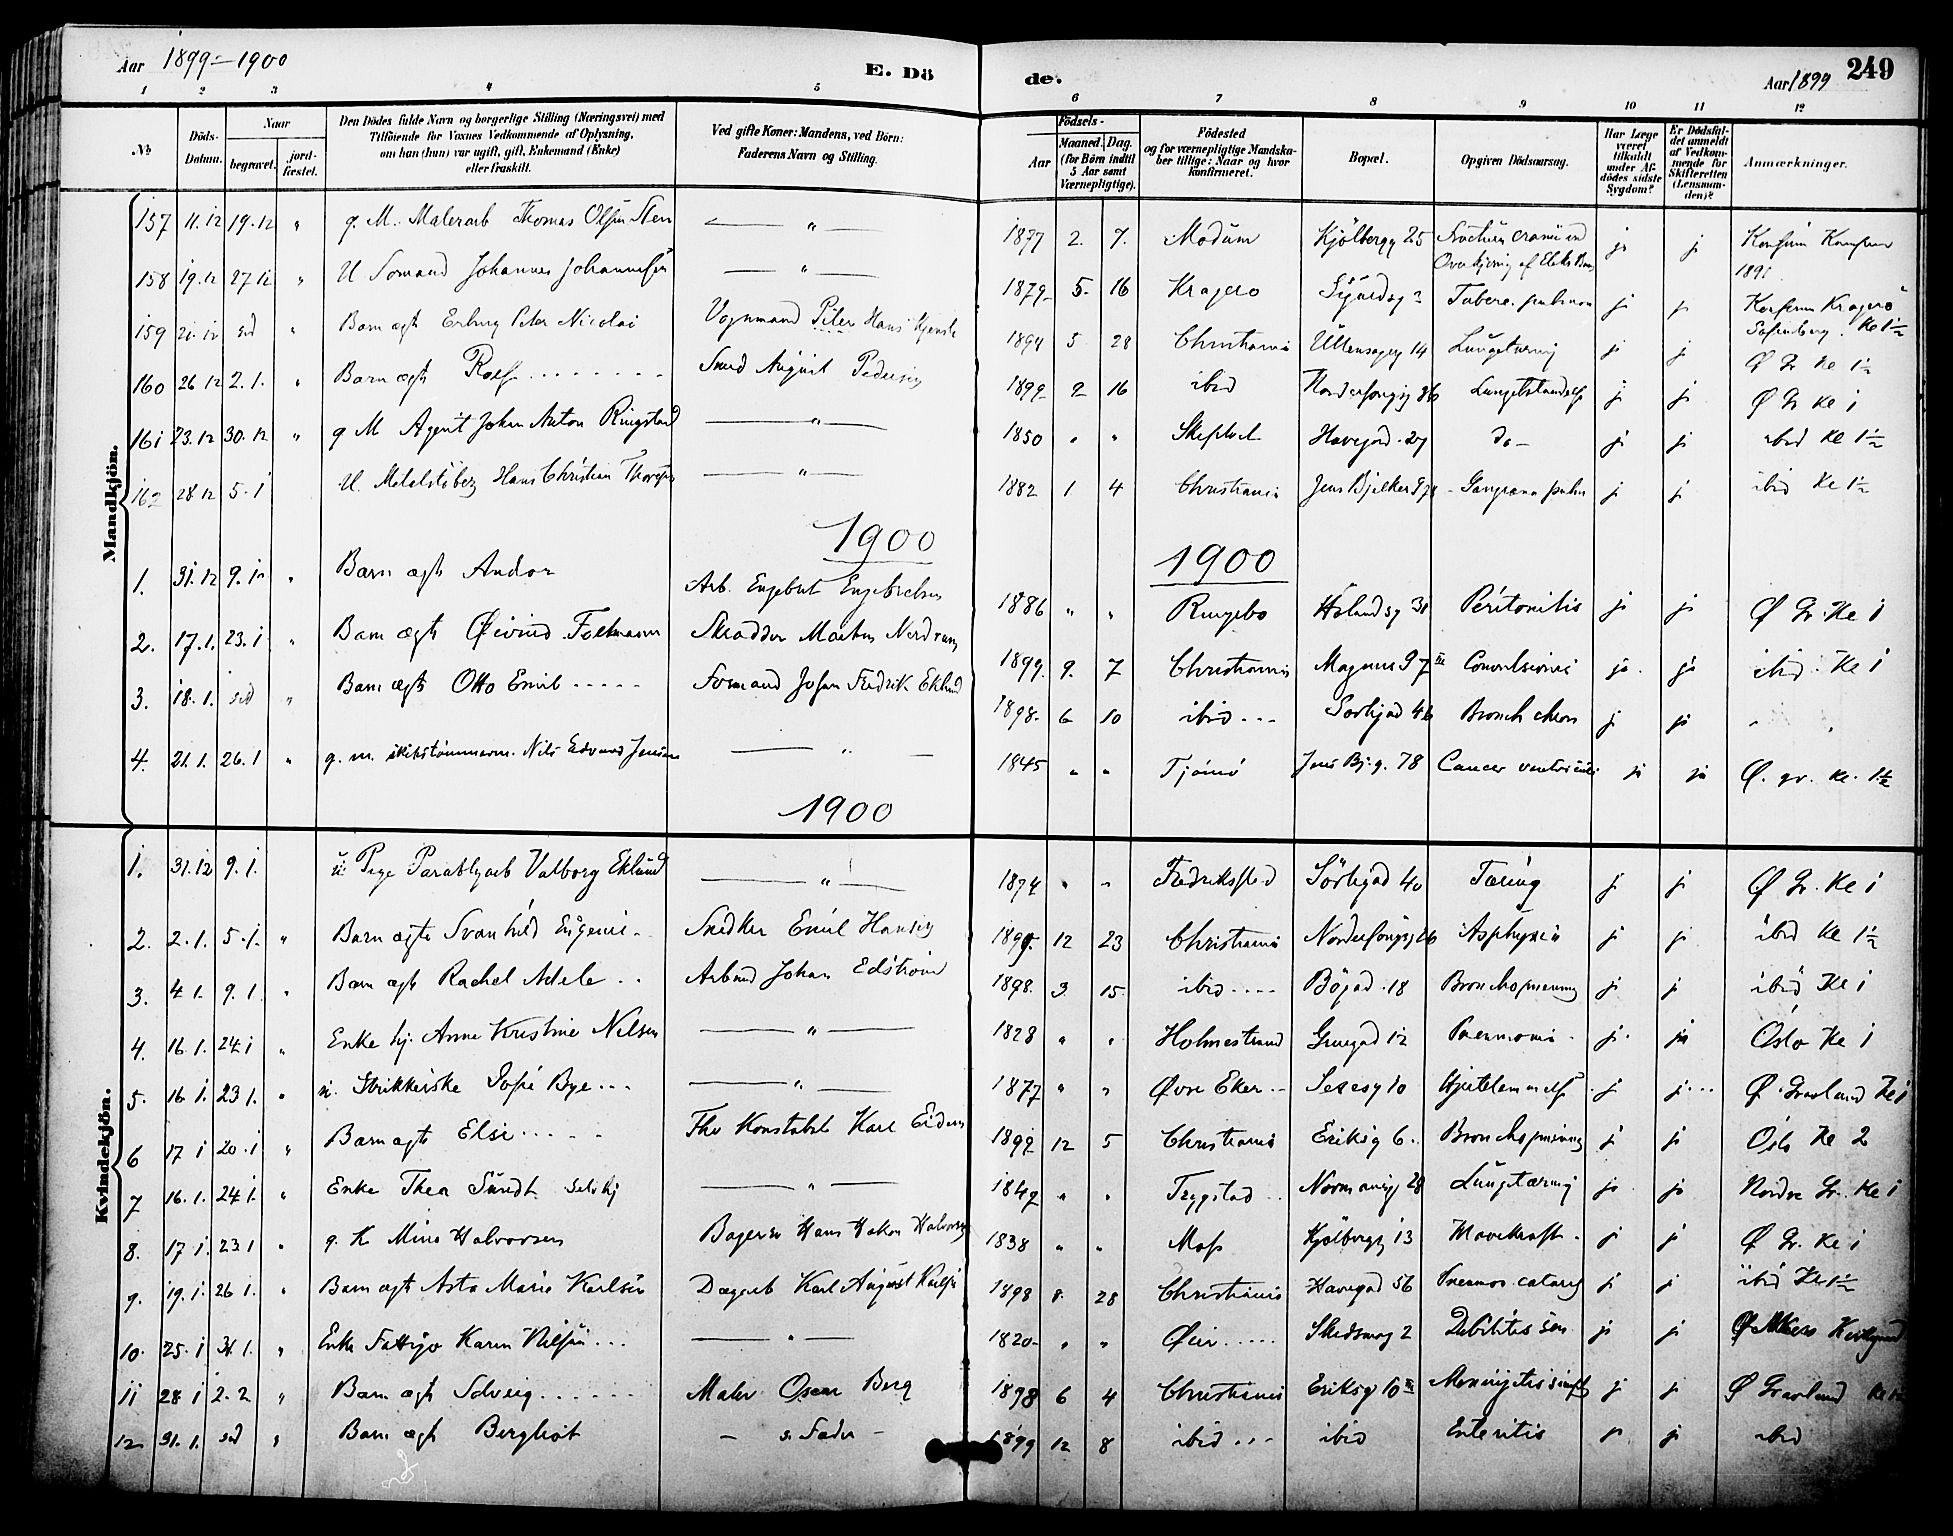 Aar 1899 - 1900
E. Dö
de.
Aar 1899
249
1 2 3 4 5 6 7 8 9 10 11 12
No
Döds-Datum.
Naar
begravet.
jord-fæstet.
Den Dödes fulde Navn og borgerlige Stilling (Næringsvei) med
Tilföiende for Voxnes Vedkommende af Oplysning,
om han (hun) var ugift, gift, Enkemand (Enke)
eller fraskilt.
Ved gifte Koner: Mandens, ved Börn:
Faderens Navn og Stilling.
Födsels-
Aar
Maaned. Dag.
(for Börn indtil
5 Aar samt
Værnepligtige).
Födested
og for værnepligtige Mandska-
ber tillige: Naar og hvor
konfirmeret.
Bopæl.
Opgiven Dödsaarsag.
Har Læge
været
tilkaldt
under Af-
dödes sidste
Sygdom?
Er Dödsfal-
det anmeldt
af Vedkom-
mende for
Skifteretten
(Lensman-
den)?
Anmærkninger.
Mandkjön.
157 11.12 19.12 " g. M. Malerarb Thomas Olsen Sten — " — 1877 2. 7. Modum Kjölbergg 25 ja ja
1891
158 19.12 27 12 " U Sömand Johannes Johannesen — " — 1879 5. 16 Kragerö 3 Tuberc. pulmon ja ja Kragerö
159 21.12 sed " Barn ægt Erling Peter Nicolai Vognmand Peter Hans 1894 5 28 Christiania Ullensagerg 14 Lungetæring ja ja Ø Gr Ke 1½
160 26 12 2.1. " Barn ægt Rolf Smed August Pedersen 1899 2 16 ibid ja ja Ø Gr Ke 1
161 23.12 30.12 " g M Agent Johan Anton Ringstad — " — 1850 " " Havegad. 27 do - ja ja ibid Ke 1½
162 28 12 5.1 U. Metalstöber Hans Christian — " — 1882 1 4 Christiania Jens Bjelkesg 78 Gangræna pulm ja ja ibid Ke 1½
1900
1900
1. 31.12 9.1 " Barn ægt Andor Arb. Engebret Engebretsen 1886 " " Ringebo 31 Peritonitis ja ja Ø Gr. Ke 1
2. 17.1. 23.1 " Barn ægt Øivind Skrædder Morten Nordrum 1899. 9. 7 Christiania Magnus g 7 Convulsiones ja ja ibid Ke 1
3. 18.1. sed " Barn ægt Otto Emil Formand Johan Fredrik Eklund 1898 6 10 ibid Sörligad 46 Bronch chron ja ja " "
4. 21.1. 26.1 " g. m. skibstømmerm. Nils Edvard Jensen — " — 1845 " " Tjömö Jens Bj.g. 78 Cancer ventriculi ja ja Ø. gr. ke. 1½
1900
Kvindekjön.
1. 31.12 9.1. u. Pige Valborg Eklund — " — 1874 " " Fredriksstad Sörligad 40 Tæring ja ja Ø Gr. Ke 1
2. 2.1. 5.1. " Barn ægte Svanhild Eugenie Snedker Emil Hansen 1899 12 23 Christiania Asphyxia ja ja ibid Ke 1½
3. 4.1. 9.1. " Barn ægt Rachel Adele Arbmd Johan Edström 1898. 3. 15. ibid Bögad. 18 Bronchopneumoni ja ja ibid Ke 1
4. 16.1. 24.1 " Enke hj. Anne Kristine Nilsen — " — 1828 " " Holmestrand Grüegad 12 Pneumonia ja ja Oslo Ke 1
5. 16.1. 23.1. " u. Strikkerske Sofie Bye — " — 1877 " " Øvre Eker 10 ja ja Ø. Grønland Ke 1
6 17.1 20.1 " Barn ægt Else Konstabel Karl 1899 12 5 Christiania Eriksg 6. Bronchopneumoni ja ja Oslo Ke 2
7 16.1. 24.1. " Enke Thea Sundt — " — 1849 " " Trygstad Normannsg 28 Lungetæring ja ja Nordre Gr. Ke 1
8. 17.1. 23.1 " g. K Mina Halvorsen Bager Hans Hakon Halvorsen 1838 " " Moss Kjölbergg 13 Mavekræft ja ja Ø Gr. Ke 1
9. 19.1. 26.1. " Barn ægt Asta Marie Karlsen Dagarb Karl August Karlsen 1898 8. 28 Christiania Havegad 56 Pneumon. catarrh ja ja ibid Ke 1½
10. 25.1 31.1. " Enke Karen Nilsen — " — 1820 " " Öier Skedsmog 2 Debilitas sen ja ja
11 28.1 2.2 " Barn ægt Solveig Maler Oscar Berg 1898 6 4 Christiania Eriksg 10 Meningitis ja ja Ø Grønland
12 31.1. sed " Barn ægt Bergliot — s. Fader — 1899 12 8 ibid ibid Enteritis ja ja ibid